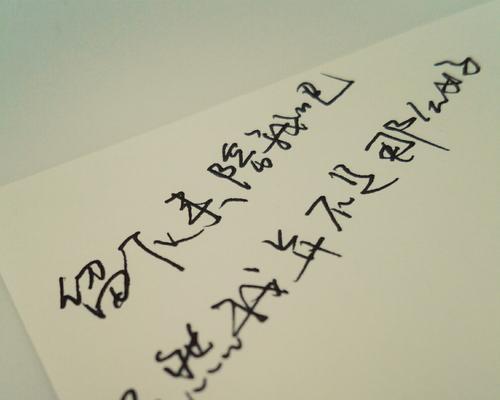 留下来陪我吧
然我并不是那么好